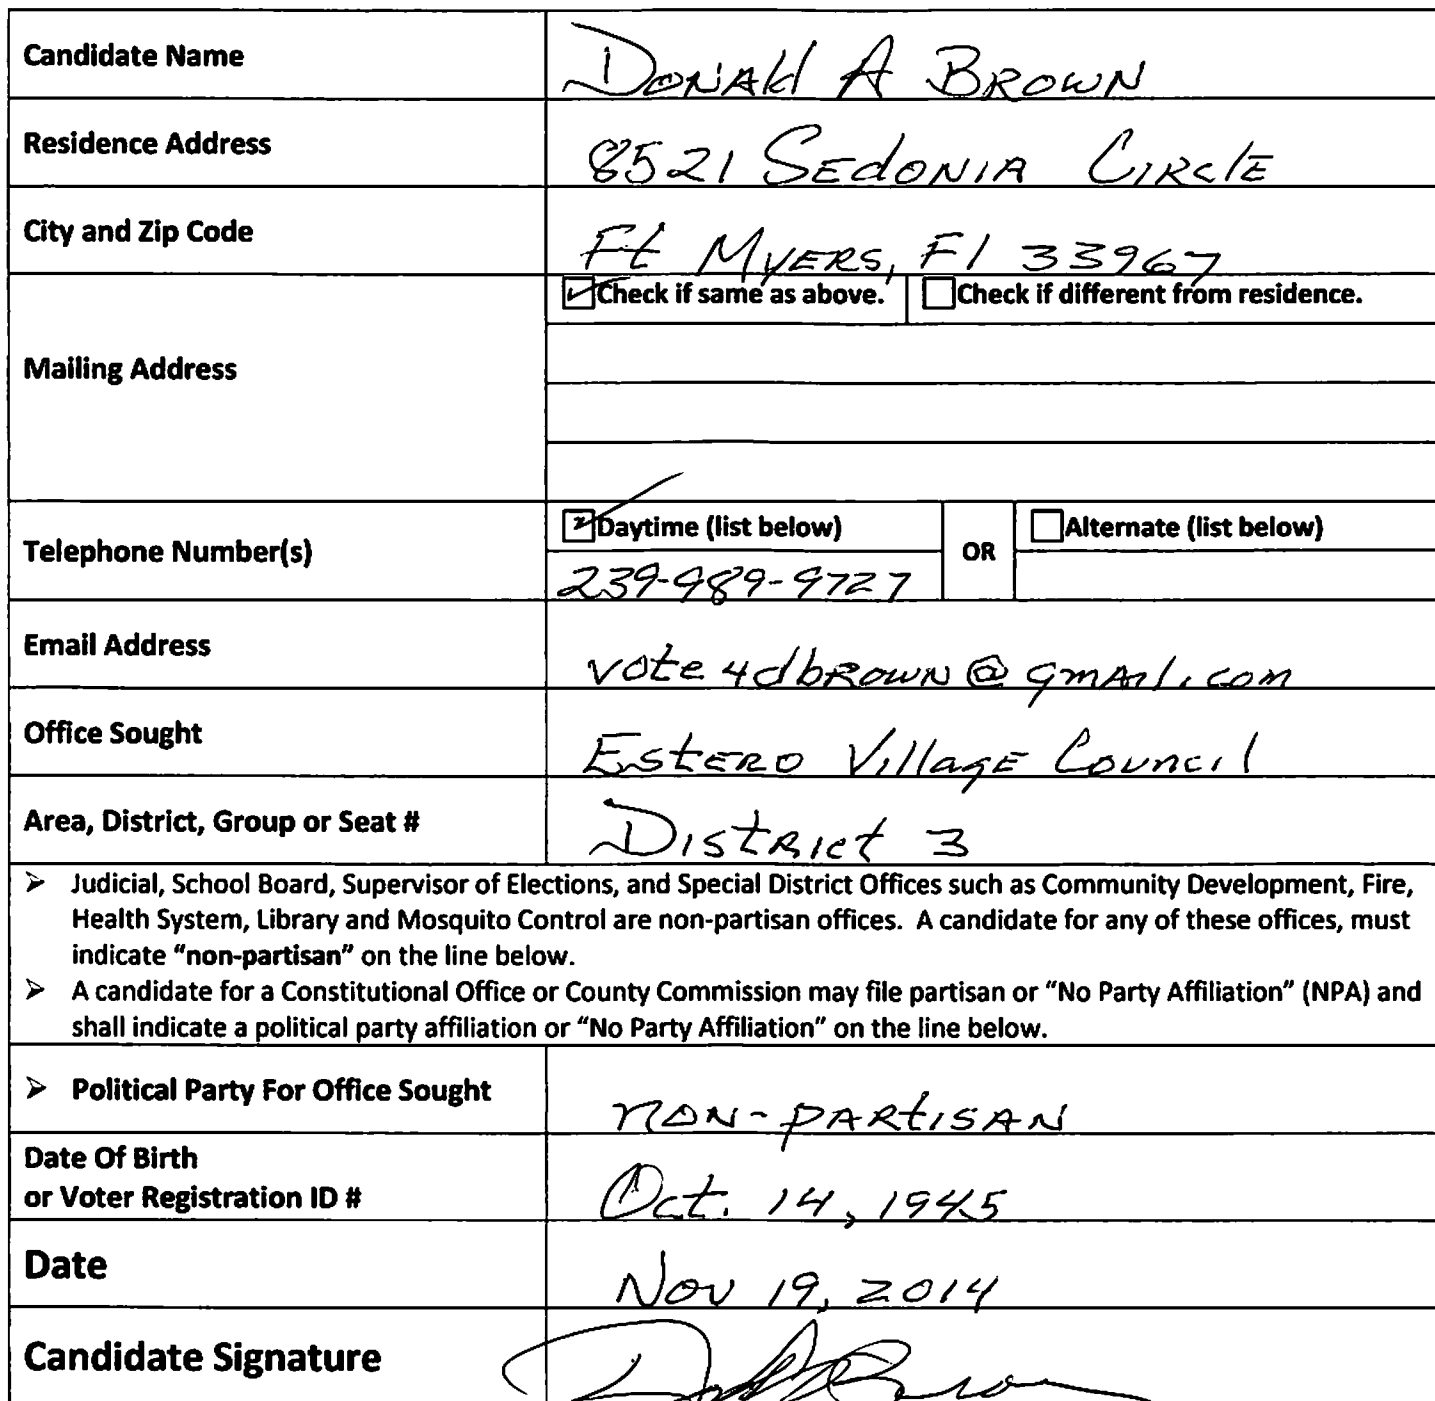 Candidate Name DONAld A BROWN
Residence Address 8521 SEdONIA CIRClE
City and Zip Code Ft MYERS, Fl 33967
Check if same as above. Check if different from residence.
Mailing Address
Daytime (list below) OR Alternate (list below)
Telephone Number(s) 239-989-9727
Email Address vote4dbrown@gmail.com
Office Sought Estero Village Council
Area, District, Group or Seat # District 3
➢ Judicial, School Board, Supervisor of Elections, and Special District Offices such as Community Development, Fire,
Health System, Library and Mosquito Control are non-partisan offices. A candidate for any of these offices, must
indicate "non-partisan" on the line below.
➢ A candidate for a Constitutional Office or County Commission may file partisan or "No Party Affiliation" (NPA) and
shall indicate a political party affiliation or "No Party Affiliation" on the line below.
➢ Political Party For Office Sought non-partisan
Date Of Birth
or Voter Registration ID # Oct. 14, 1945
Date Nov 19, 2014
Candidate Signature